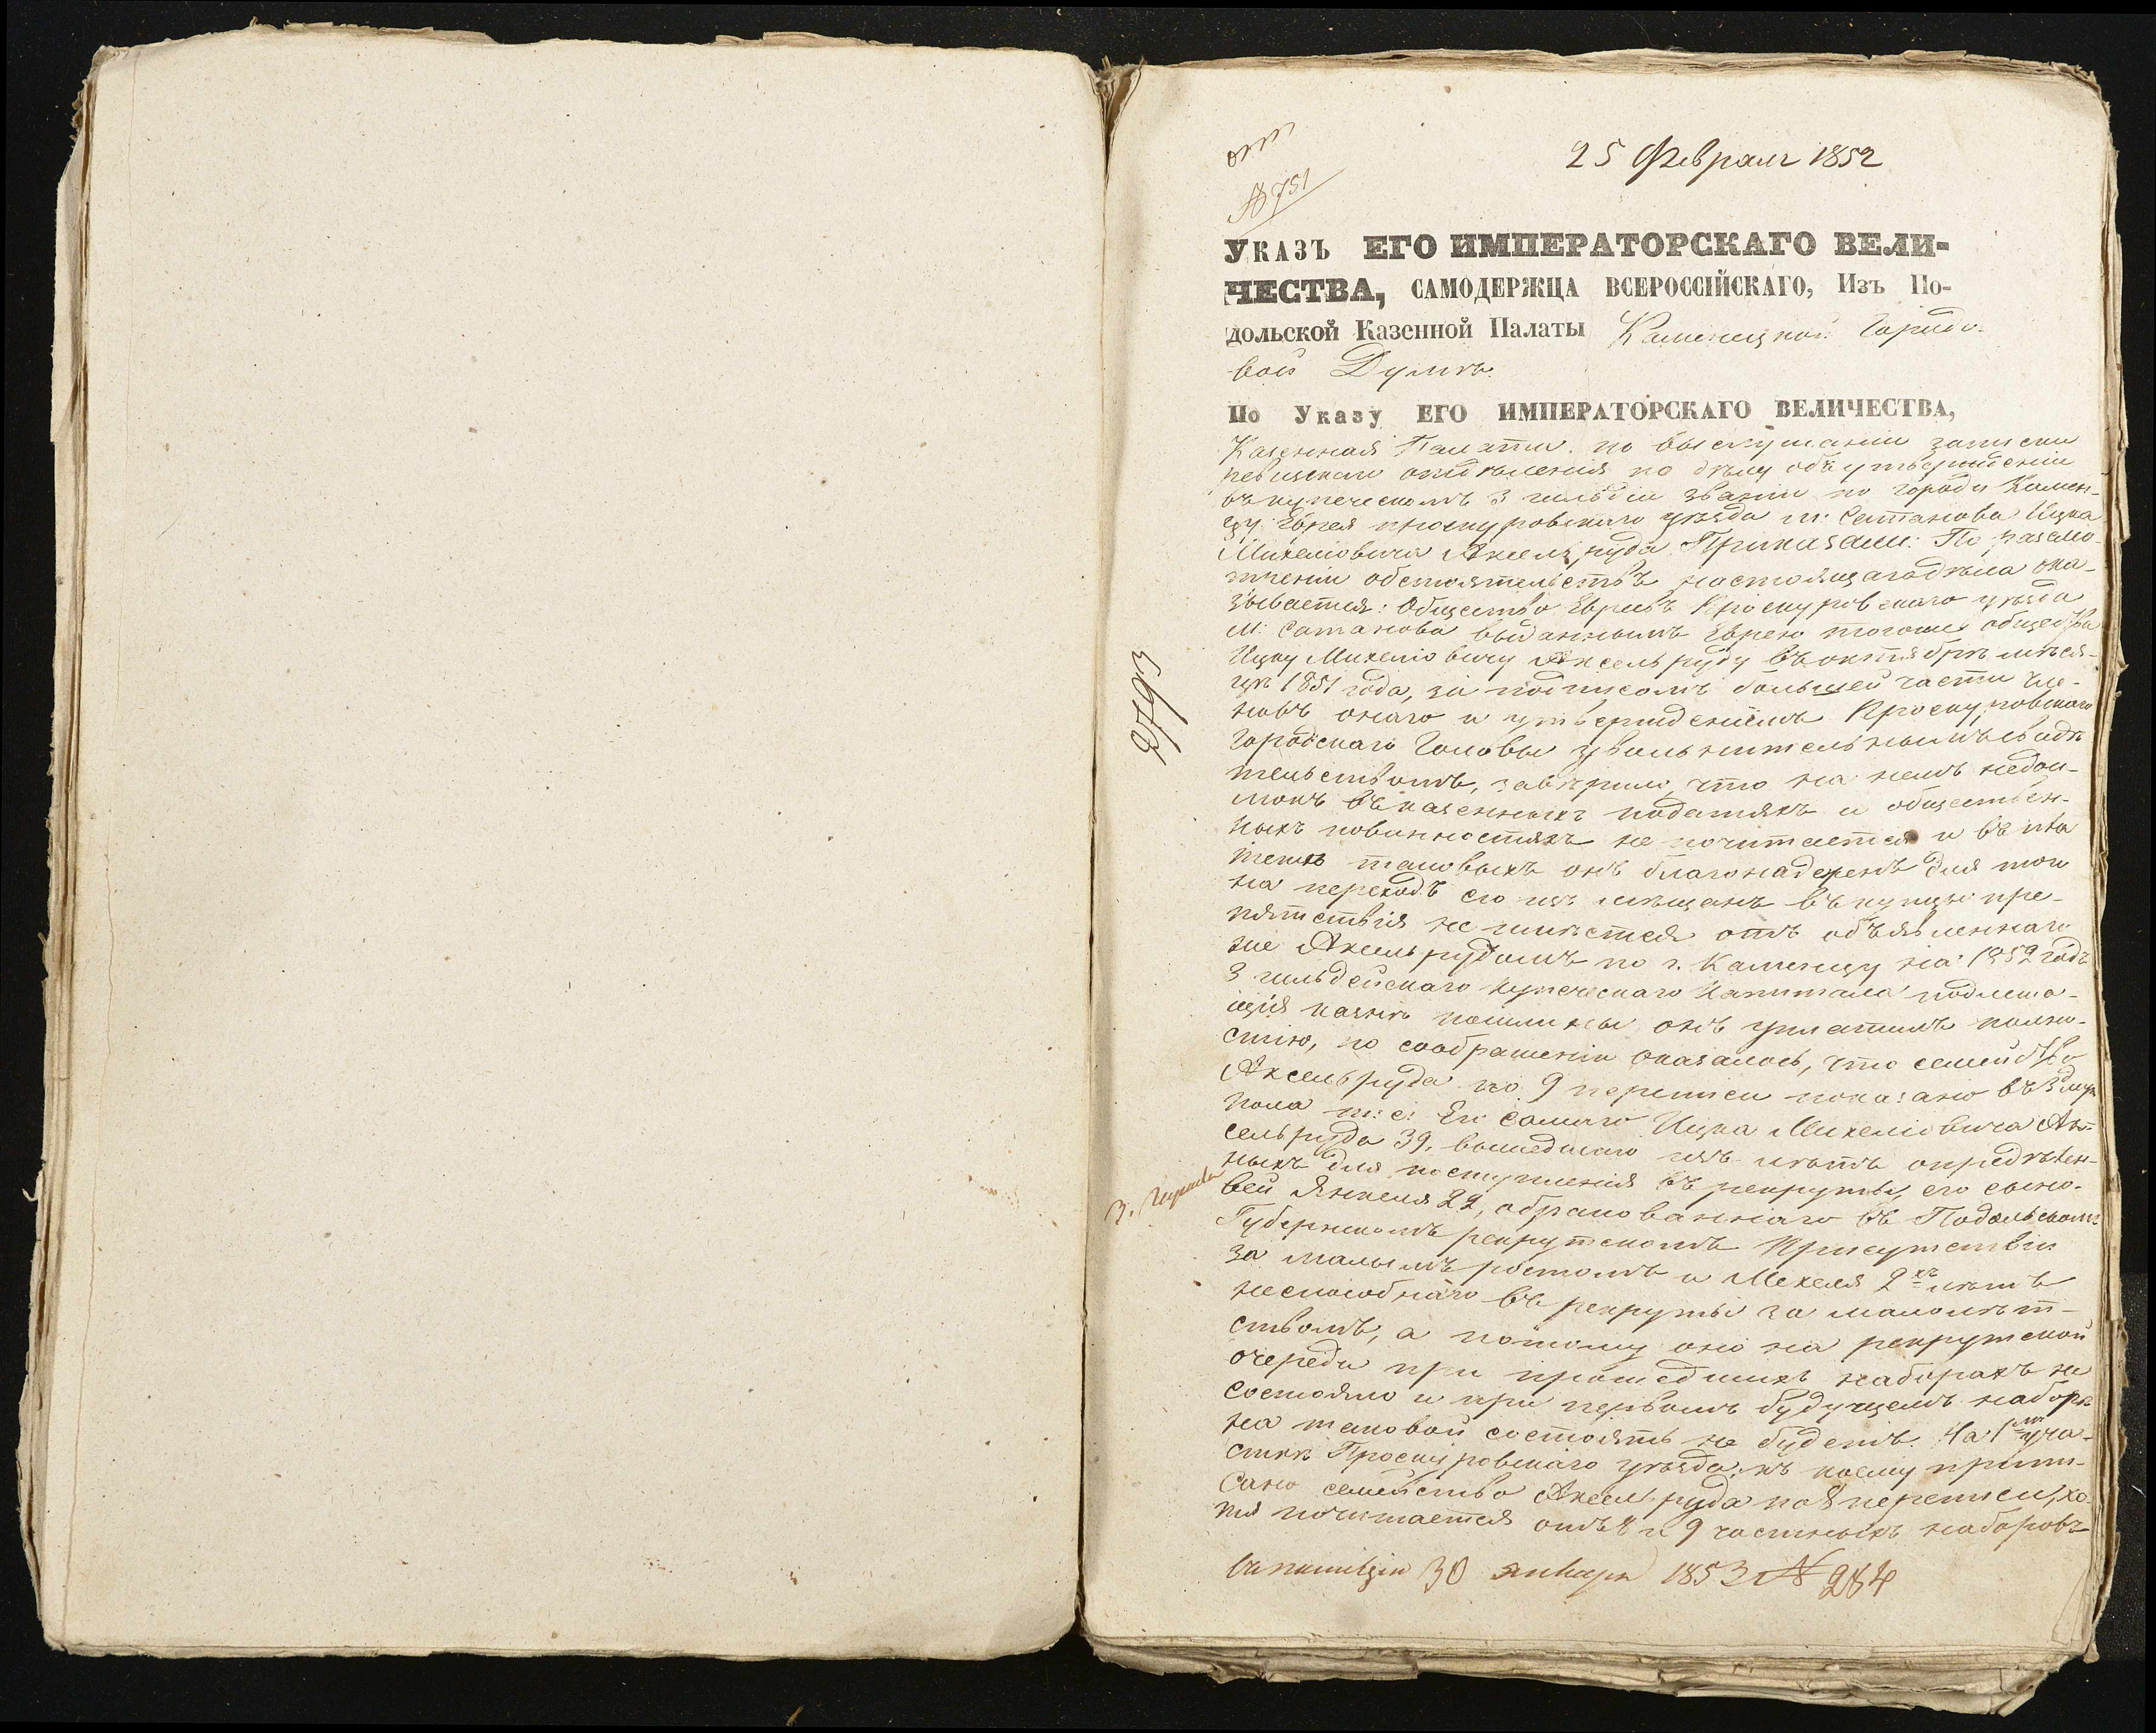 отп
№ 751
25 Февраля 1852
Указъ ЕГО ИМПЕРАТОРСКАГО ВЕЛИ-
ЧЕСТВА, САМОДЕРЖЦА ВСЕРОССІЙСКАГО, Изъ По-
дольской Казенной Палаты Каменецкой Городо-
вой Думѣ.
По Указу ЕГО ИМПЕРАТОРСКАГО ВЕЛИЧЕСТВА,
Казенная Палата по выслушаніи записки
ревизскаго отдѣленія по дѣлу объ утвержденіи
въ купеческомъ 3 гильдіи званіи по городу Камен-
цу Еврея проскуровскаго уѣзда м: Сатанова Ицка
Михелiовича Аксельруда Приказали: По разсмо-
трѣніи обстоятельствъ настоящаго дѣла ока-
зывается: Общество Евреевъ Проскуровскаго уѣзда
м: Сатанова выданнымъ Еврею тогоже общества
Ицку Михелiовичу Аксельруду въ октябрѣ мѣся-
цѣ 1851 года, за подписомъ большей части чле-
новъ онаго и утвержденіемъ Проскуровскаго
Городскаго Головы увольнительнымъ свидѣ
тельствомъ, завѣрило, что на немъ недои-
мокъ въ казенныхъ податяхъ и обществен-
ныхъ повинностяхъ не почитается и въ пла
тежѣ таковыхъ онъ благонадеженъ для того
на переходъ его изъ мѣщанъ въ купцы пре-
пятствія не имѣется отъ объявленнаго
же Аксельрудомъ по г. Каменцу на 1852 годъ
3 гильдейскаго купеческаго капитала подлежа-
щія казнѣ пошлины онъ уплатилъ полно-
стію, по соображеніи оказалось, что семейство
Аксельруда по 9 переписи показано въ 3 д муж
пола т: е: Его самаго Ицка Михелiовича Ак-
сельруда 39, вышедшаго изъ лѣтъ опредѣлен-
ныхъ для поступленія въ рекруты, его сыно-
вей Янкеля 22, обракованнаго въ Подольскомъ
Губернскомъ рекрутскомъ Присутствіи
за малымъ ростомъ и Мехеля 2хъ лѣтъ
неспособнаго въ рекруты за малолѣт-
ствомъ, а потому оно на рекрутской
очереди при прошедшихъ наборахъ не
состояло и при первомъ будущемъ наборѣ
на таковой состоять не будетъ. На 1мъ уча-
сткѣ Проскуровскаго уѣзда, къ коему припи-
сано семейство Аксельруда по 8 переписи, хо-
тя почитается отъ 8 и 9 частныхъ наборовъ
30 января 1853 № 284